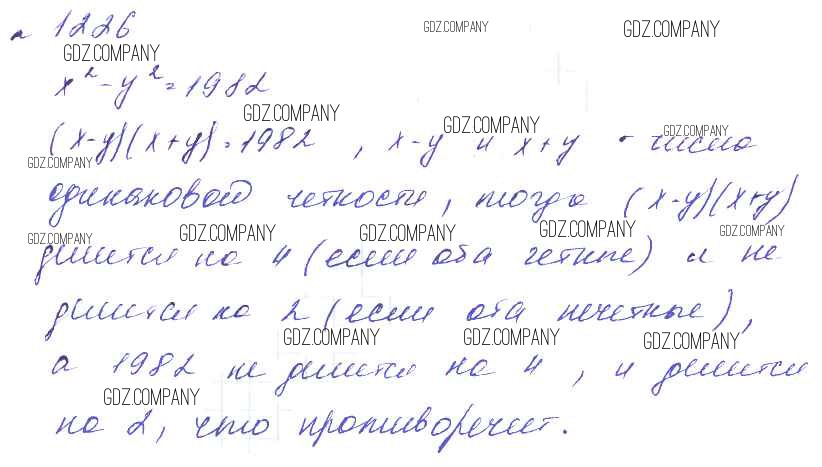 № 1226
GDZ.COMPANY GDZ.COMPANY GDZ.COMPANY
x² - y² = 1982
GDZ.COMPANY GDZ.COMPANY GDZ.COMPANY
(x-y)(x+y) = 1982, x-y и x+y - числа
GDZ.COMPANY
одинаковой четкости, тогда (x-y)(x+y)
GDZ.COMPANY GDZ.COMPANY GDZ.COMPANY GDZ.COMPANY GDZ.COMPANY
делится на 4 (если оба четные) и не
делится на 2 (если оба нечетные),
GDZ.COMPANY GDZ.COMPANY GDZ.COMPANY
а 1982 не делится на 4, и делится
GDZ.COMPANY
на 2, что противоречит.